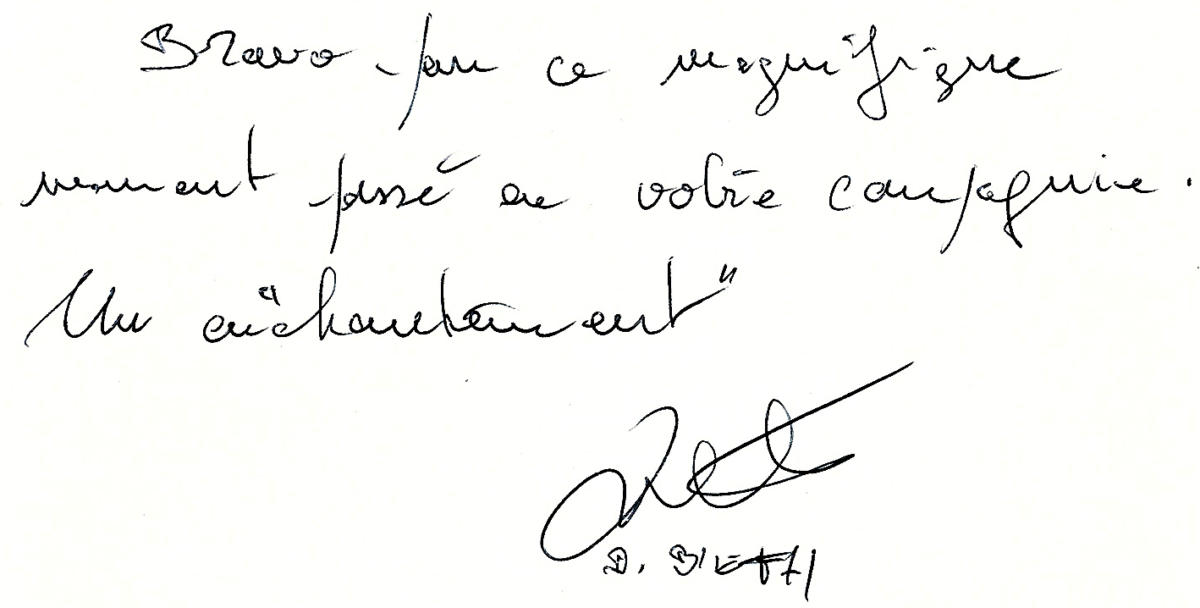 Bravo pour ce magnifique
moment passé en votre compagnie.
Un en"chantement"
D.